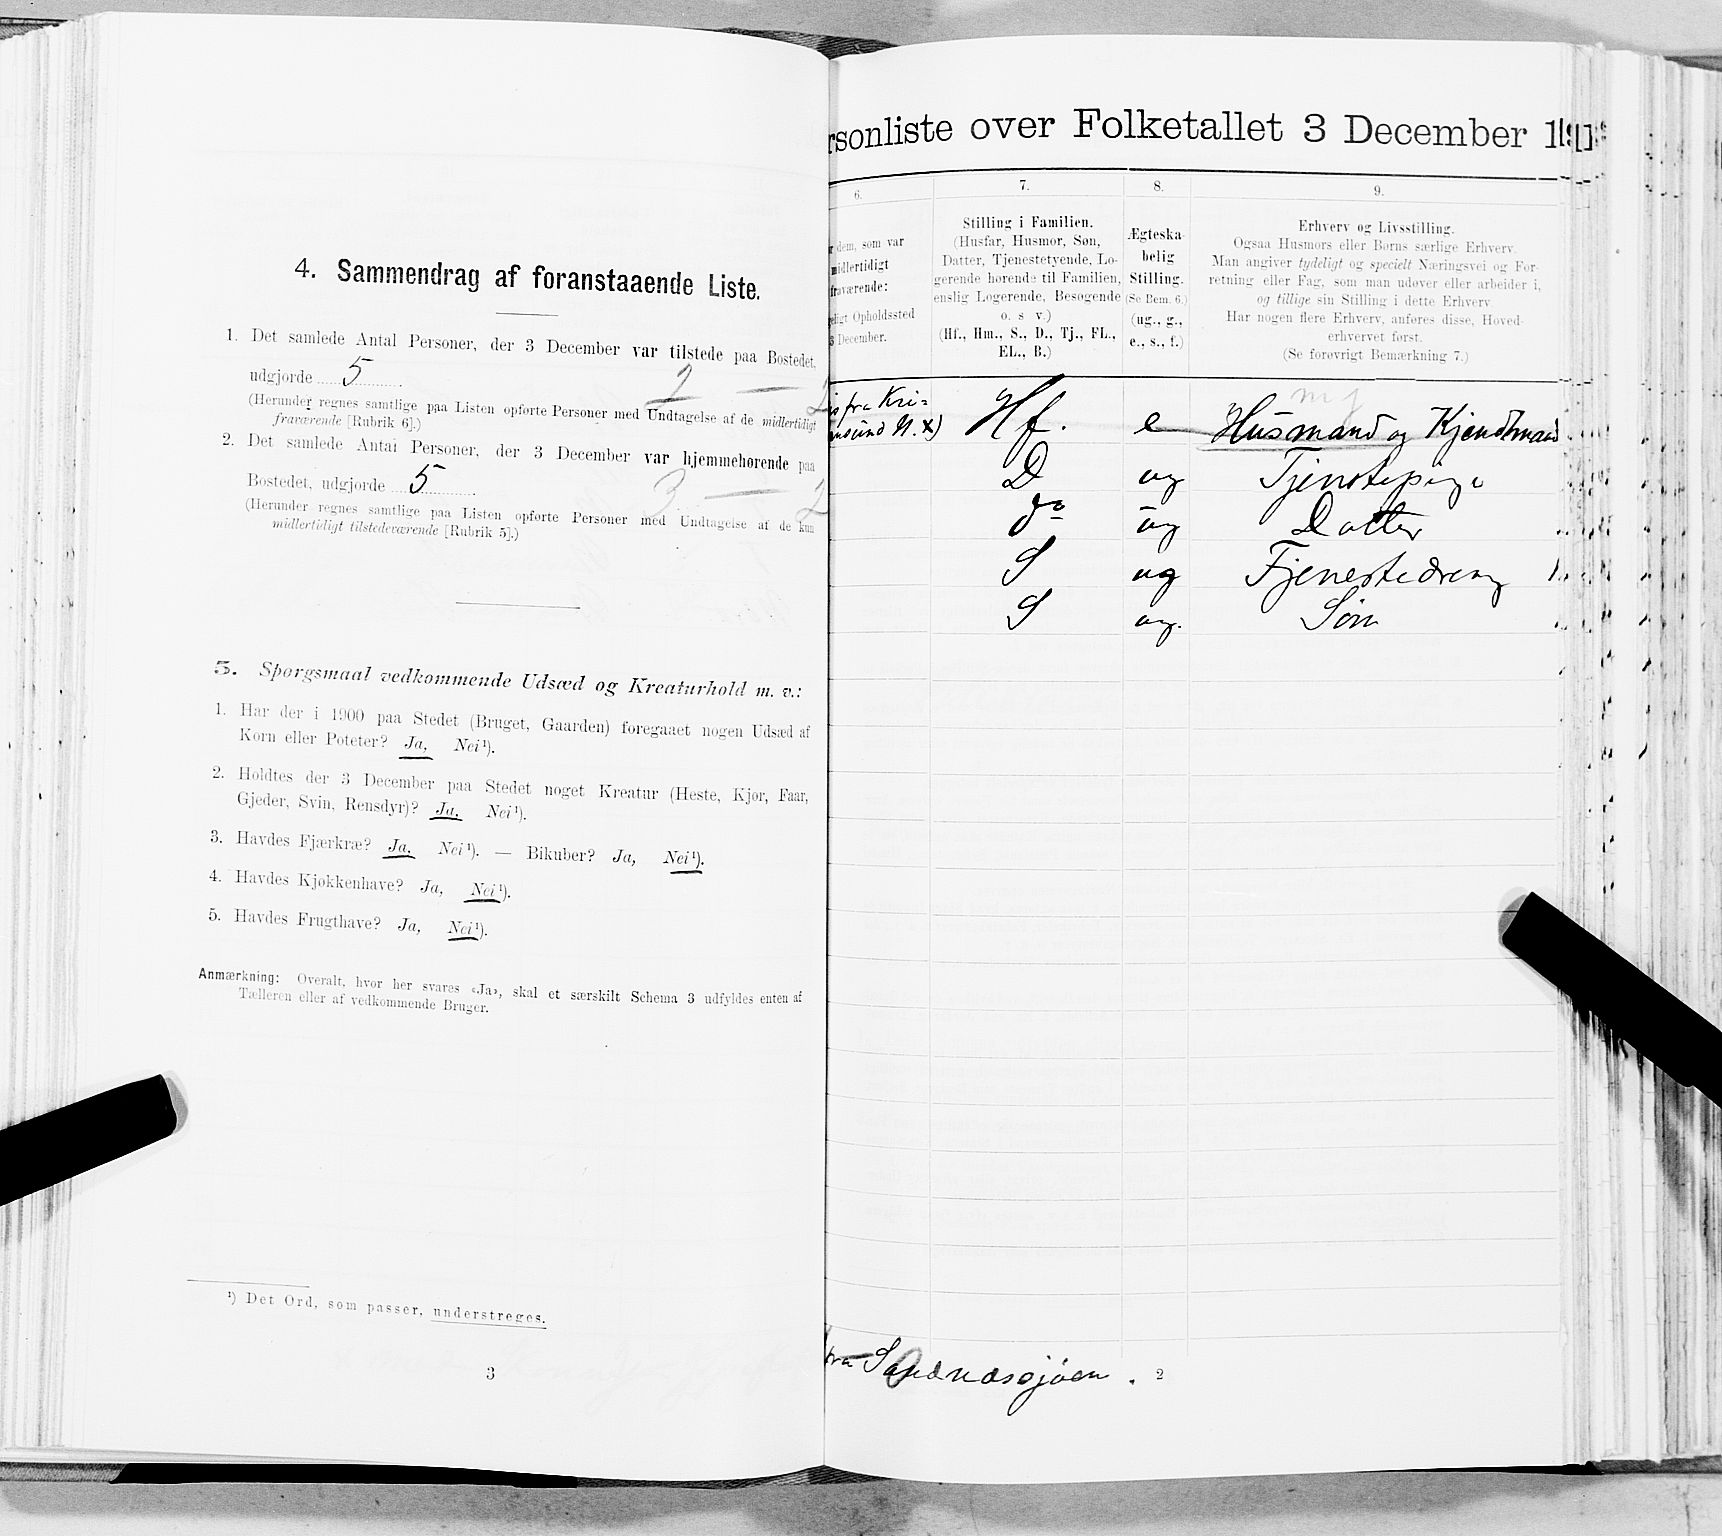 4. Sammendrag af foranstaaende Liste.
1. Det samlede Antal Personer, der 3 December var tilstede paa Bostedet,
udgjorde 5 2 — 2
(Herunder regnes samtlige paa Listen opførte Personer med Undtagelse af de midlertidigt
fraværende [Rubrik 6].)
2. Det samlede Antal Personer, der 3 December var hjemmehørende paa
Bostedet, udgjorde 5 3 — 2
(Herunder regnes samtlige paa Listen opførte Personer med Undtagelse af de kun
midlertidigt tilstedeværende [Rubrik 5].)
5. Spørgsmaal vedkommende Udsæd og Kreaturhold m. v.:
1. Har der i 1900 paa Stedet (Bruget, Gaarden) foregaaet nogen Udsæd af
Korn eller Poteter? Ja, Nei¹).
2. Holdtes der 3 December paa Stedet noget Kreatur (Heste, Kjør, Faar,
Gjeder, Svin, Rensdyr)? Ja. Nei¹).
3. Havdes Fjærkræ? Ja. Nei¹). — Bikuber? Ja, Nei¹).
4. Havdes Kjøkkenhave? Ja, Nei¹).
5. Havdes Frugthave? Ja, Nei¹).
Anmærkning: Overalt, hvor her svares «Ja», skal et særskilt Schema 3 udfyldes enten af
Tælleren eller af vedkommende Bruger.
¹) Det Ord, som passer, understreges.
3
rsonliste over Folketallet 3 December 1
6.
dem, som var
midlertidigt
fraværende:
Opholdssted
December.
7.
Stilling i Familien.
(Husfar, Husmor, Søn,
Datter, Tjenestetyende, Lo-
gerende hørende til Familien,
enslig Logerende, Besøgende
o. s v.)
(Hf., Hm., S., D., Tj., FL.,
EL., B.)
8.
Ægteska-
belig
Stilling.
(Se Bem. 6.)
(ug., g.,
e., s., f.)
9.
Erhverv og Livsstilling.
Ogsaa Husmors eller Børns særlige Erhverv.
Man angiver tydeligt og specielt Næringsvei og For-
retning eller Fag, som man udøver eller arbeider i,
og tillige sin Stilling i dette Erhverv.
Har nogen flere Erhverv, anføres disse, Hoved-
erhvervet først.
(Se forøvrigt Bemærkning 7.)
fra Kri=
sund N. x) Hf. e Husmand og Kjendtmand
D ug Tjenestepige
do ug Datter
S ug Tjenestedreng
S ug. Søn
fra Sandnæssjøen.
2